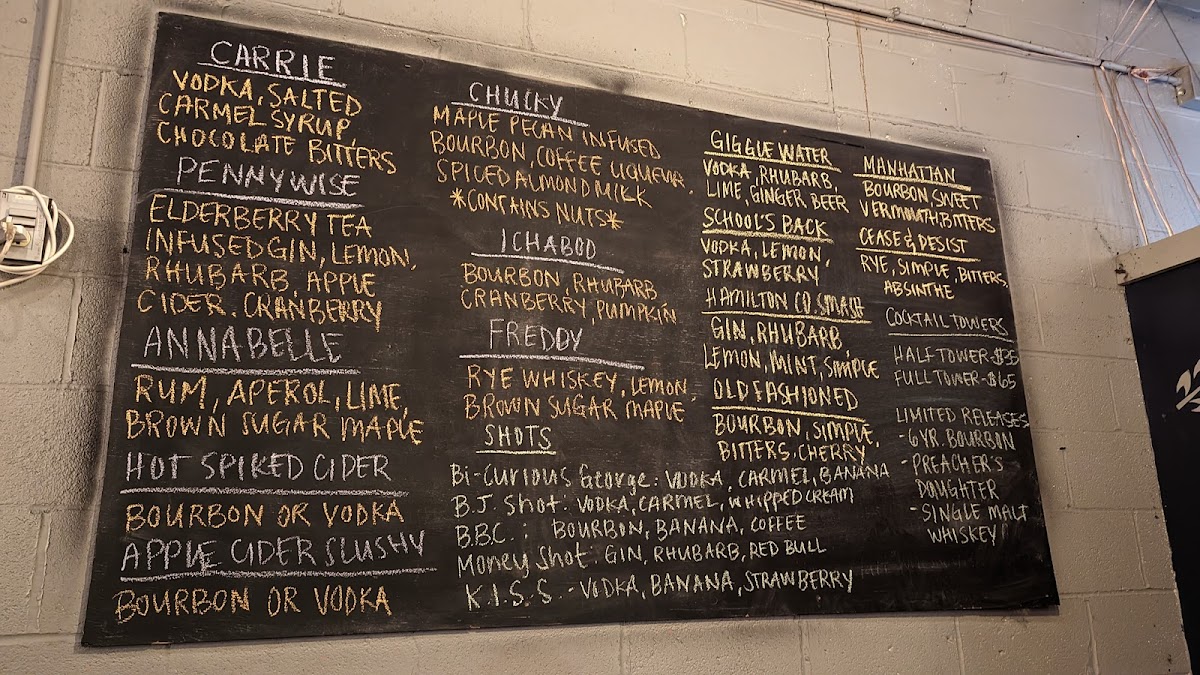 CARRIE
VODKA, SALTED
CARMEL SYRUP,
CHOCOLATE BITTERS
PENNYWISE
ELDERBERRY TEA
INFUSED GIN, LEMON,
RHUBARB, APPLE
CIDER, CRANBERRY
ANNABELLE
RUM, APEROL, LIME,
BROWN SUGAR MAPLE
HOT SPIKED CIDER
BOURBON OR VODKA
APPLE CIDER SLUSHY
BOURBON OR VODKA
CHUCKY
MAPLE PECAN INFUSED
BOURBON, COFFEE LIQUEUR,
SPICED ALMOND MILK
*CONTAINS NUTS*
ICHABOD
BOURBON, RHUBARB
CRANBERRY, PUMPKIN
FREDDY
RYE WHISKEY, LEMON,
BROWN SUGAR MAPLE
SHOTS
Bi-Curious George: VODKA, CARMEL, BANANA
B.J. Shot: VODKA, CARMEL, WHIPPED CREAM
B.B.C.: BOURBON, BANANA, COFFEE
Money Shot: GIN, RHUBARB, RED BULL
K.I.S.S. - VODKA, BANANA, STRAWBERRY
GIGGLE WATER
VODKA, RHUBARB,
LIME, GINGER BEER
SCHOOL'S BACK
VODKA, LEMON,
STRAWBERRY
HAMILTON CO. SMASH
GIN, RHUBARB
LEMON, MINT, SIMPLE
OLD FASHIONED
BOURBON, SIMPLE,
BITTERS, CHERRY
MANHATTAN
BOURBON, SWEET
VERMOUTH, BITTERS
CEASE & DESIST
RYE, SIMPLE, BITTERS,
ABSINTHE
COCKTAIL TOWERS
HALF TOWER-$35
FULL TOWER-$65
LIMITED RELEASES
-6YR. BOURBON
-PREACHER'S
DOUGHTER
-SINGLE MALT
WHISKEY